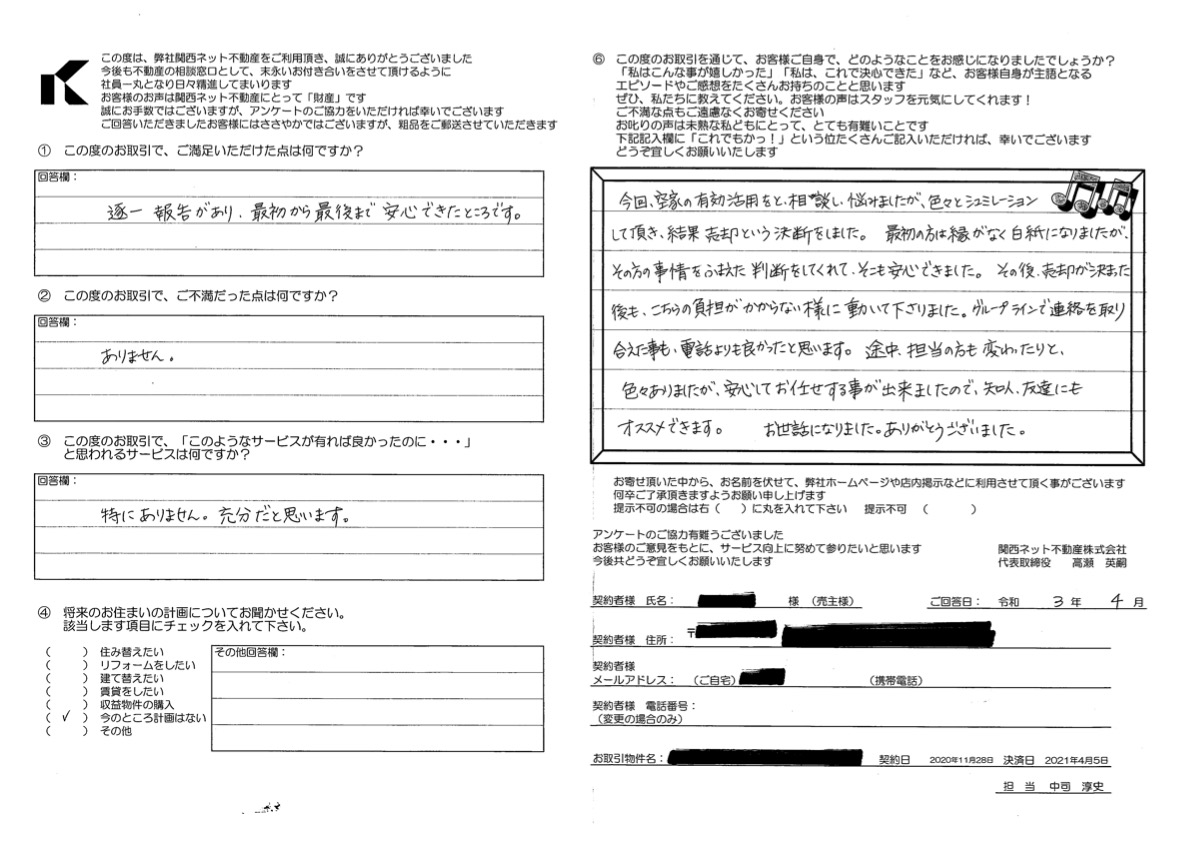 この度は、弊社関西ネット不動産をご利用頂き、誠にありがとうございました
今後も不動産の相談窓口として、末永いお付き合いをさせて頂けるように
社員一丸となり日々精進してまいります
お客様のお声は関西ネット不動産にとって「財産」です
誠にお手数ではございますが、アンケートのご協力をいただければ幸いでございます
ご回答いただきましたお客様にはささやかではございますが、粗品をご郵送させていただきます
① この度のお取引で、ご満足いただけた点は何ですか?
回答欄:
逐一 報告があり、最初から最後まで 安心できたところです。
② この度のお取引で、ご不満だった点は何ですか?
回答欄:
ありません。
③ この度のお取引で、「このようなサービスが有れば良かったのに・・・」
と思われるサービスは何ですか?
回答欄:
特にありません。充分だと思います。
④ 将来のお住まいの計画についてお聞かせください。
該当します項目にチェックを入れて下さい。
( ) 住み替えたい
( ) リフォームをしたい
( ) 建て替えたい
( ) 賃貸をしたい
( ) 収益物件の購入
( ✓ ) 今のところ計画はない
( ) その他
その他回答欄:
⑥ この度のお取引を通じて、お客様ご自身で、どのようなことをお感じになりましたでしょうか?
「私はこんな事が嬉しかった」「私は、これで決心できた」など、お客様自身が主語となる
エピソードやご感想をたくさんお持ちのことと思います
ぜひ、私たちに教えてください。お客様の声はスタッフを元気にしてくれます!
ご不満な点もご遠慮なくお寄せください
お叱りの声は未熟な私どもにとって、とても有難いことです
下記記入欄に「これでもかっ!」という位たくさんご記入いただければ、幸いでございます
どうぞ宜しくお願いいたします
今回、空家の有効活用をと、相談し、悩みましたが、色々とシュミレーション
して頂き、結果 売却という決断をしました。 最初の方は縁がなく白紙になりましたが、
その方の事情をふまえた 判断をしてくれて、そこも安心できました。 その後、売却が決まった
後も、こちらの負担がかからない様に動いて下さりました。グループラインで連絡を取り
合えた事も、電話よりも良かったと思います。 途中、担当の方も変わったりと、
色々ありましたが、安心してお任せする事が出来ましたので、知人、友達にも
オススメできます。 お世話になりました。ありがとうございました。
お寄せ頂いた中から、お名前を伏せて、弊社ホームページや店内掲示などに利用させて頂く事がございます
何卒ご了承頂きますようお願い申し上げます
提示不可の場合は右( )に丸を入れて下さい 提示不可 ( )
アンケートのご協力有難うございました
お客様のご意見をもとに、サービス向上に努めて参りたいと思います
今後共どうぞ宜しくお願いいたします
関西ネット不動産株式会社
代表取締役 高瀬 英嗣
契約者様 氏名: 様 (売主様) ご回答日: 令和 3 年 4 月
契約者様 住所: 〒
契約者様
メールアドレス: (ご自宅) (携帯電話)
契約者様 電話番号:
(変更の場合のみ)
お取引物件名: 契約日 2020年11月28日 決済日 2021年4月5日
担 当 中司 淳史